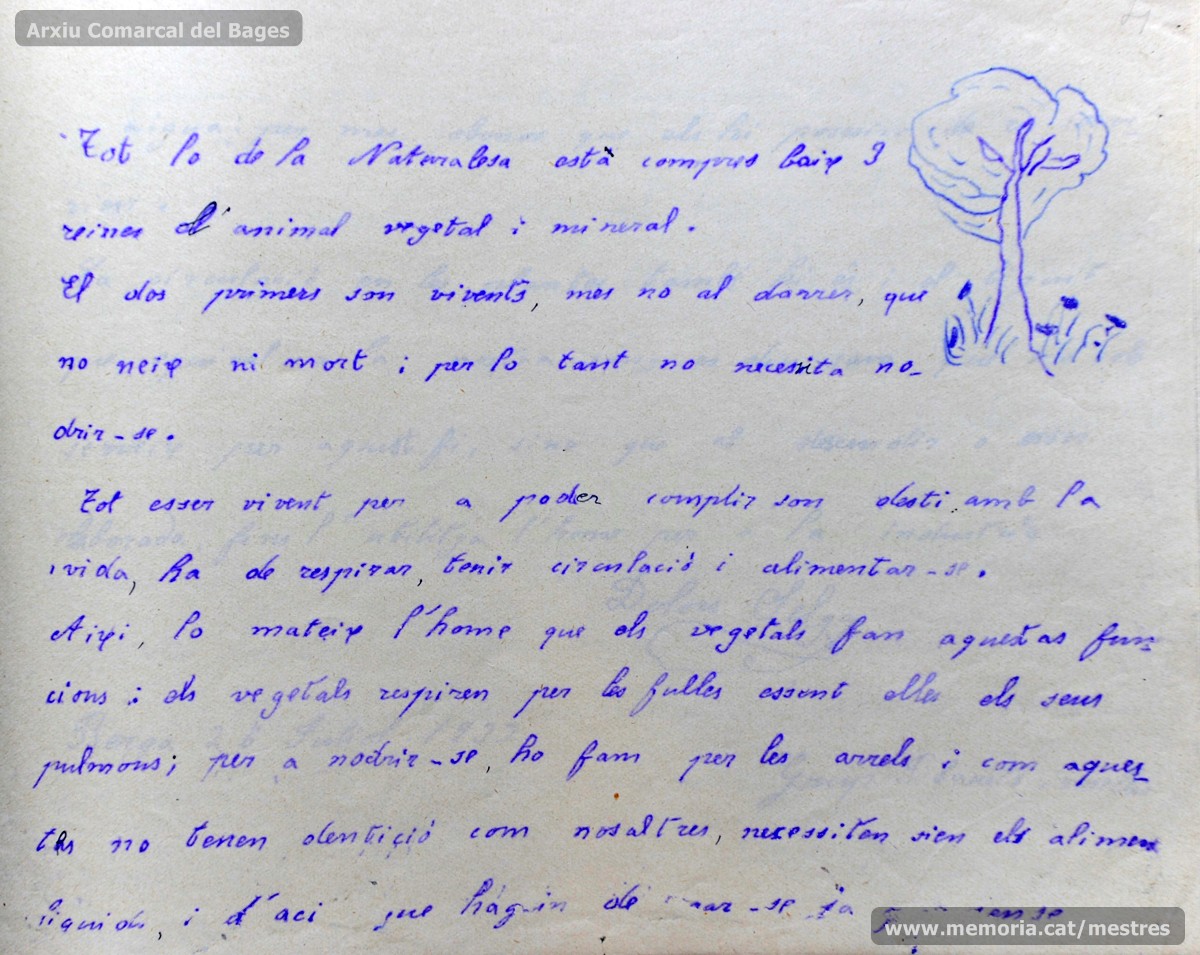 Arxiu Comarcal del Bages
Tot lo de la Naturalesa està compres baix 3
reines d'animal vegetal i mineral.
El dos primers son vivents, mes no al darrer, que
no neix ni mort i per lo tant no necessita no-
drir-se.
Tot esser vivent per a poder complir son desti amb la
vida, ha de respirar, tenir circulació i alimentar-se.
Aixi, lo mateix l'home que els vegetals fan aquestas fun-
cions i els vegetals respiren per les fulles essent elles els seus
pulmons; per a nodrir-se, ho fam per les arrels i com aques-
tes no tenen dentició com nosaltres, necessiten sien els alimen
liquids, i d'aci que hàgin de
www.memoria.cat/mestres